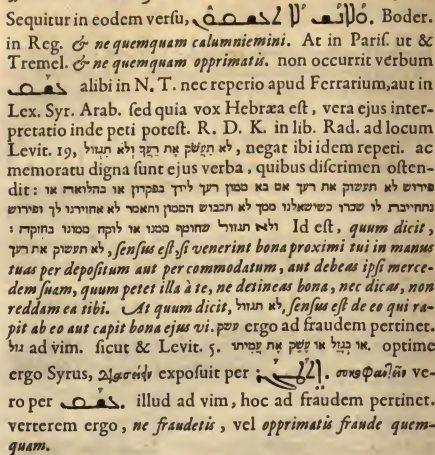 Sequitur in eodem versu, ܘܠܐܢܫ ܠܐ ܬܥܫܩܘܢ. Boder.
in Reg. & ne quemquam calumniemini. At in Paris. ut &
Tremel. & ne quemquam opprimatis. non occurrit verbum
ܥܫܩ alibi in N. T. nec reperio apud Ferrarium, aut in
Lex. Syr. Arab. sed quia vox Hebræa est, vera ejus inter-
pretatio inde peti potest. R. D. K. in lib. Rad. ad locum
Levit. 19, לא תַעֲשֹׁק אֶת רֵעֲךָ וְלֹא תִגְזוֹל, negat ibi idem repeti. ac
memoratu digna sunt ejus verba, quibus discrimen osten-
dit: פירוש לא תעשוק את רעך אם בא ממון רעך לידך בפקדון או בהלואה או
נתחייבת לו שכרו כשישאלנו ממך לא תכבוש הממון ותאמר לא אחזירנו לך ופירוש
ולא תגזול שחוטף ממנו או לוקח ממונו בחזקה: Id est, quum dicit,
לא תעשוק את רעך, sensus est, si venerint bona proximi tui in manus
tuas per depositum aut per commodatum, aut debeas ipsi merce-
dem suam, quum petet illa à te, ne detineas bona, nec dicas, non
reddam ea tibi. At quum dicit, לא תגזול, sensus est de eo qui ra-
pit ab eo aut capit bona ejus vi. עשק ergo ad fraudem pertinet.
גזל ad vim. sicut & Levit. 5. או בְגָזֵל או עָשַׁק אֶת עֲמִיתוֹ. optime
ergo Syrus, διασείειν exposuit per . συκοφαντεῖν ve-
ro per ܥܫܩ. illud ad vim, hoc ad fraudem pertinet.
verterem ergo, ne fraudetis, vel opprimatis fraude quem-
quam.